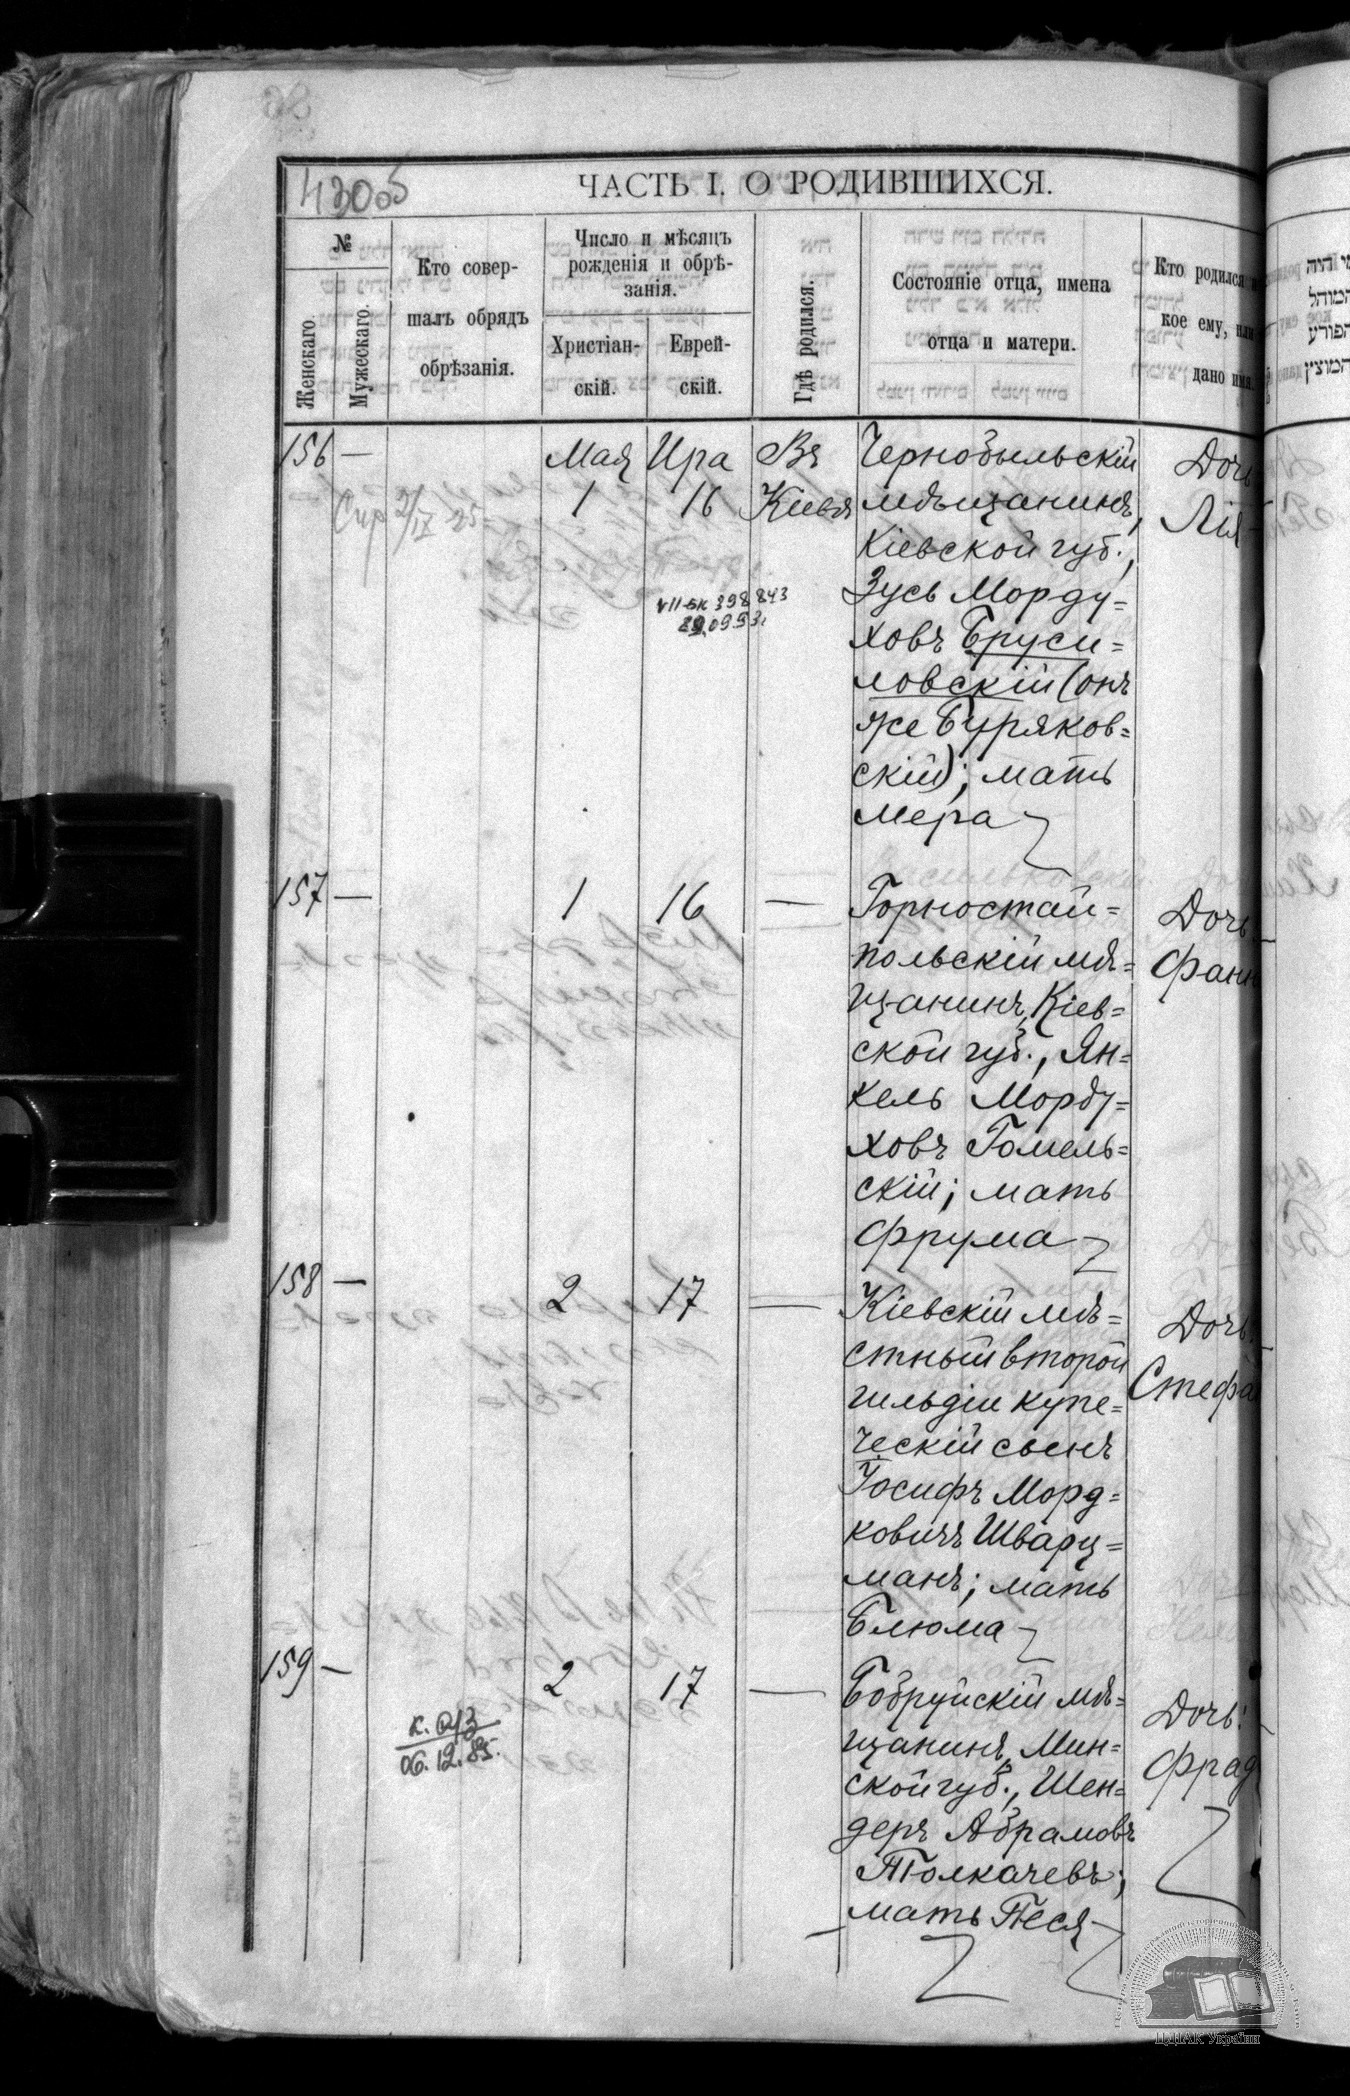 43005
ЧАСТЬ I. О РОДИВШИХСЯ.
№
Женскаго.
Мужескаго.
Кто совер-
шалъ обрядъ
обрѣзанія.
Число и мѣсяцъ
рожденія и обрѣ-
занія.
Христіан-
скій.
Еврей-
скій.
Гдѣ родился.
Состояніе отца, имена
отца и матери.
Кто родился и
кое ему, или
дано имя.
156 —
Мая
1
Ира
16
Въ
Кіевѣ
Чернобыльскій
мѣщанинъ,
Кіевской губ.,
Зусь Морду=
ховъ Бруси=
ловскій (онъ
же Буряков=
скій); мать
Мера
Дочь
Лія
Спр 2/IX 25
VII-БК 398843
29.09.93г
157 —
1
16
—
Горностай=
польскій мѣ=
щанинъ, Кіев=
ской губ., Ян=
кель Морду=
ховъ Гомель=
скій; мать
Фрума
Дочь
Фанн
158 —
2
17
—
Кіевскій мѣ=
стный второй
гильдіи купе=
ческій сынъ
Іосифъ Морд=
ковичъ Шварц=
манъ; мать
Блюма
Дочь
Стефа
159 —
2
17
—
Бобруйскій мѣ=
щанинъ, Мин=
ской губ., Шен=
деръ Абрамовъ
Толкачевъ;
мать Песя
Дочь:
Фрад
06.12.85.
ЦДІАК України